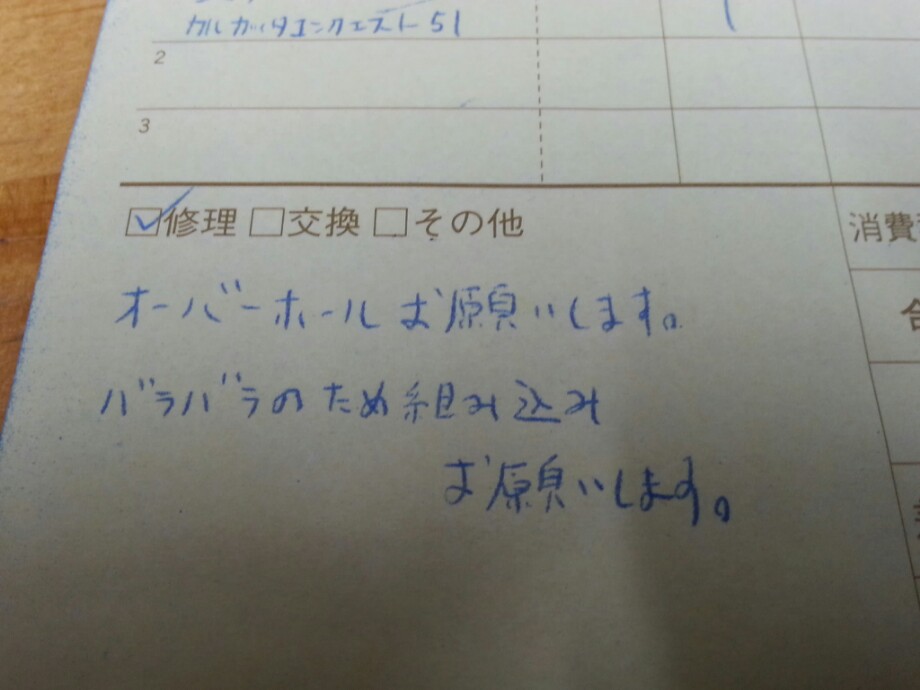 カルカッタコンクエスト51
2
3
修理 交換 その他
消費
合
オーバーホールお願いします。
バラバラのため組み込み
お願いします。